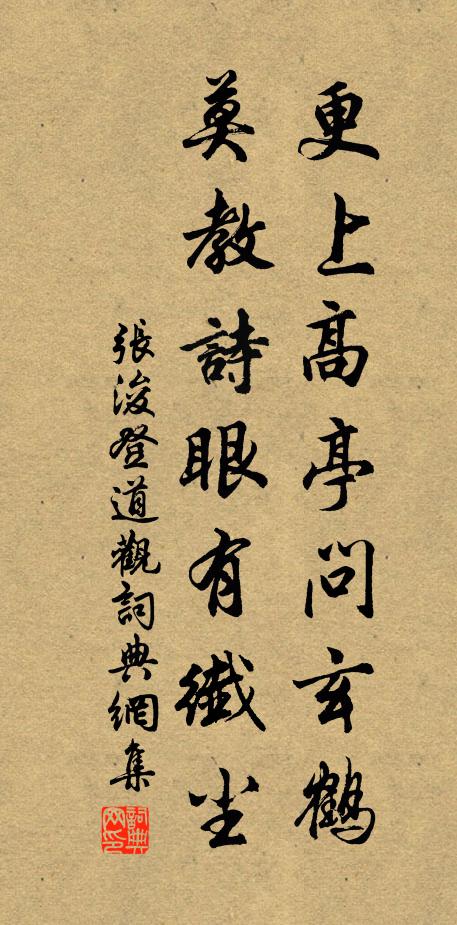 更上高亭問玄鶴
莫教詩眼有纖尘
張浚登道觀詞典網集
詞典網印